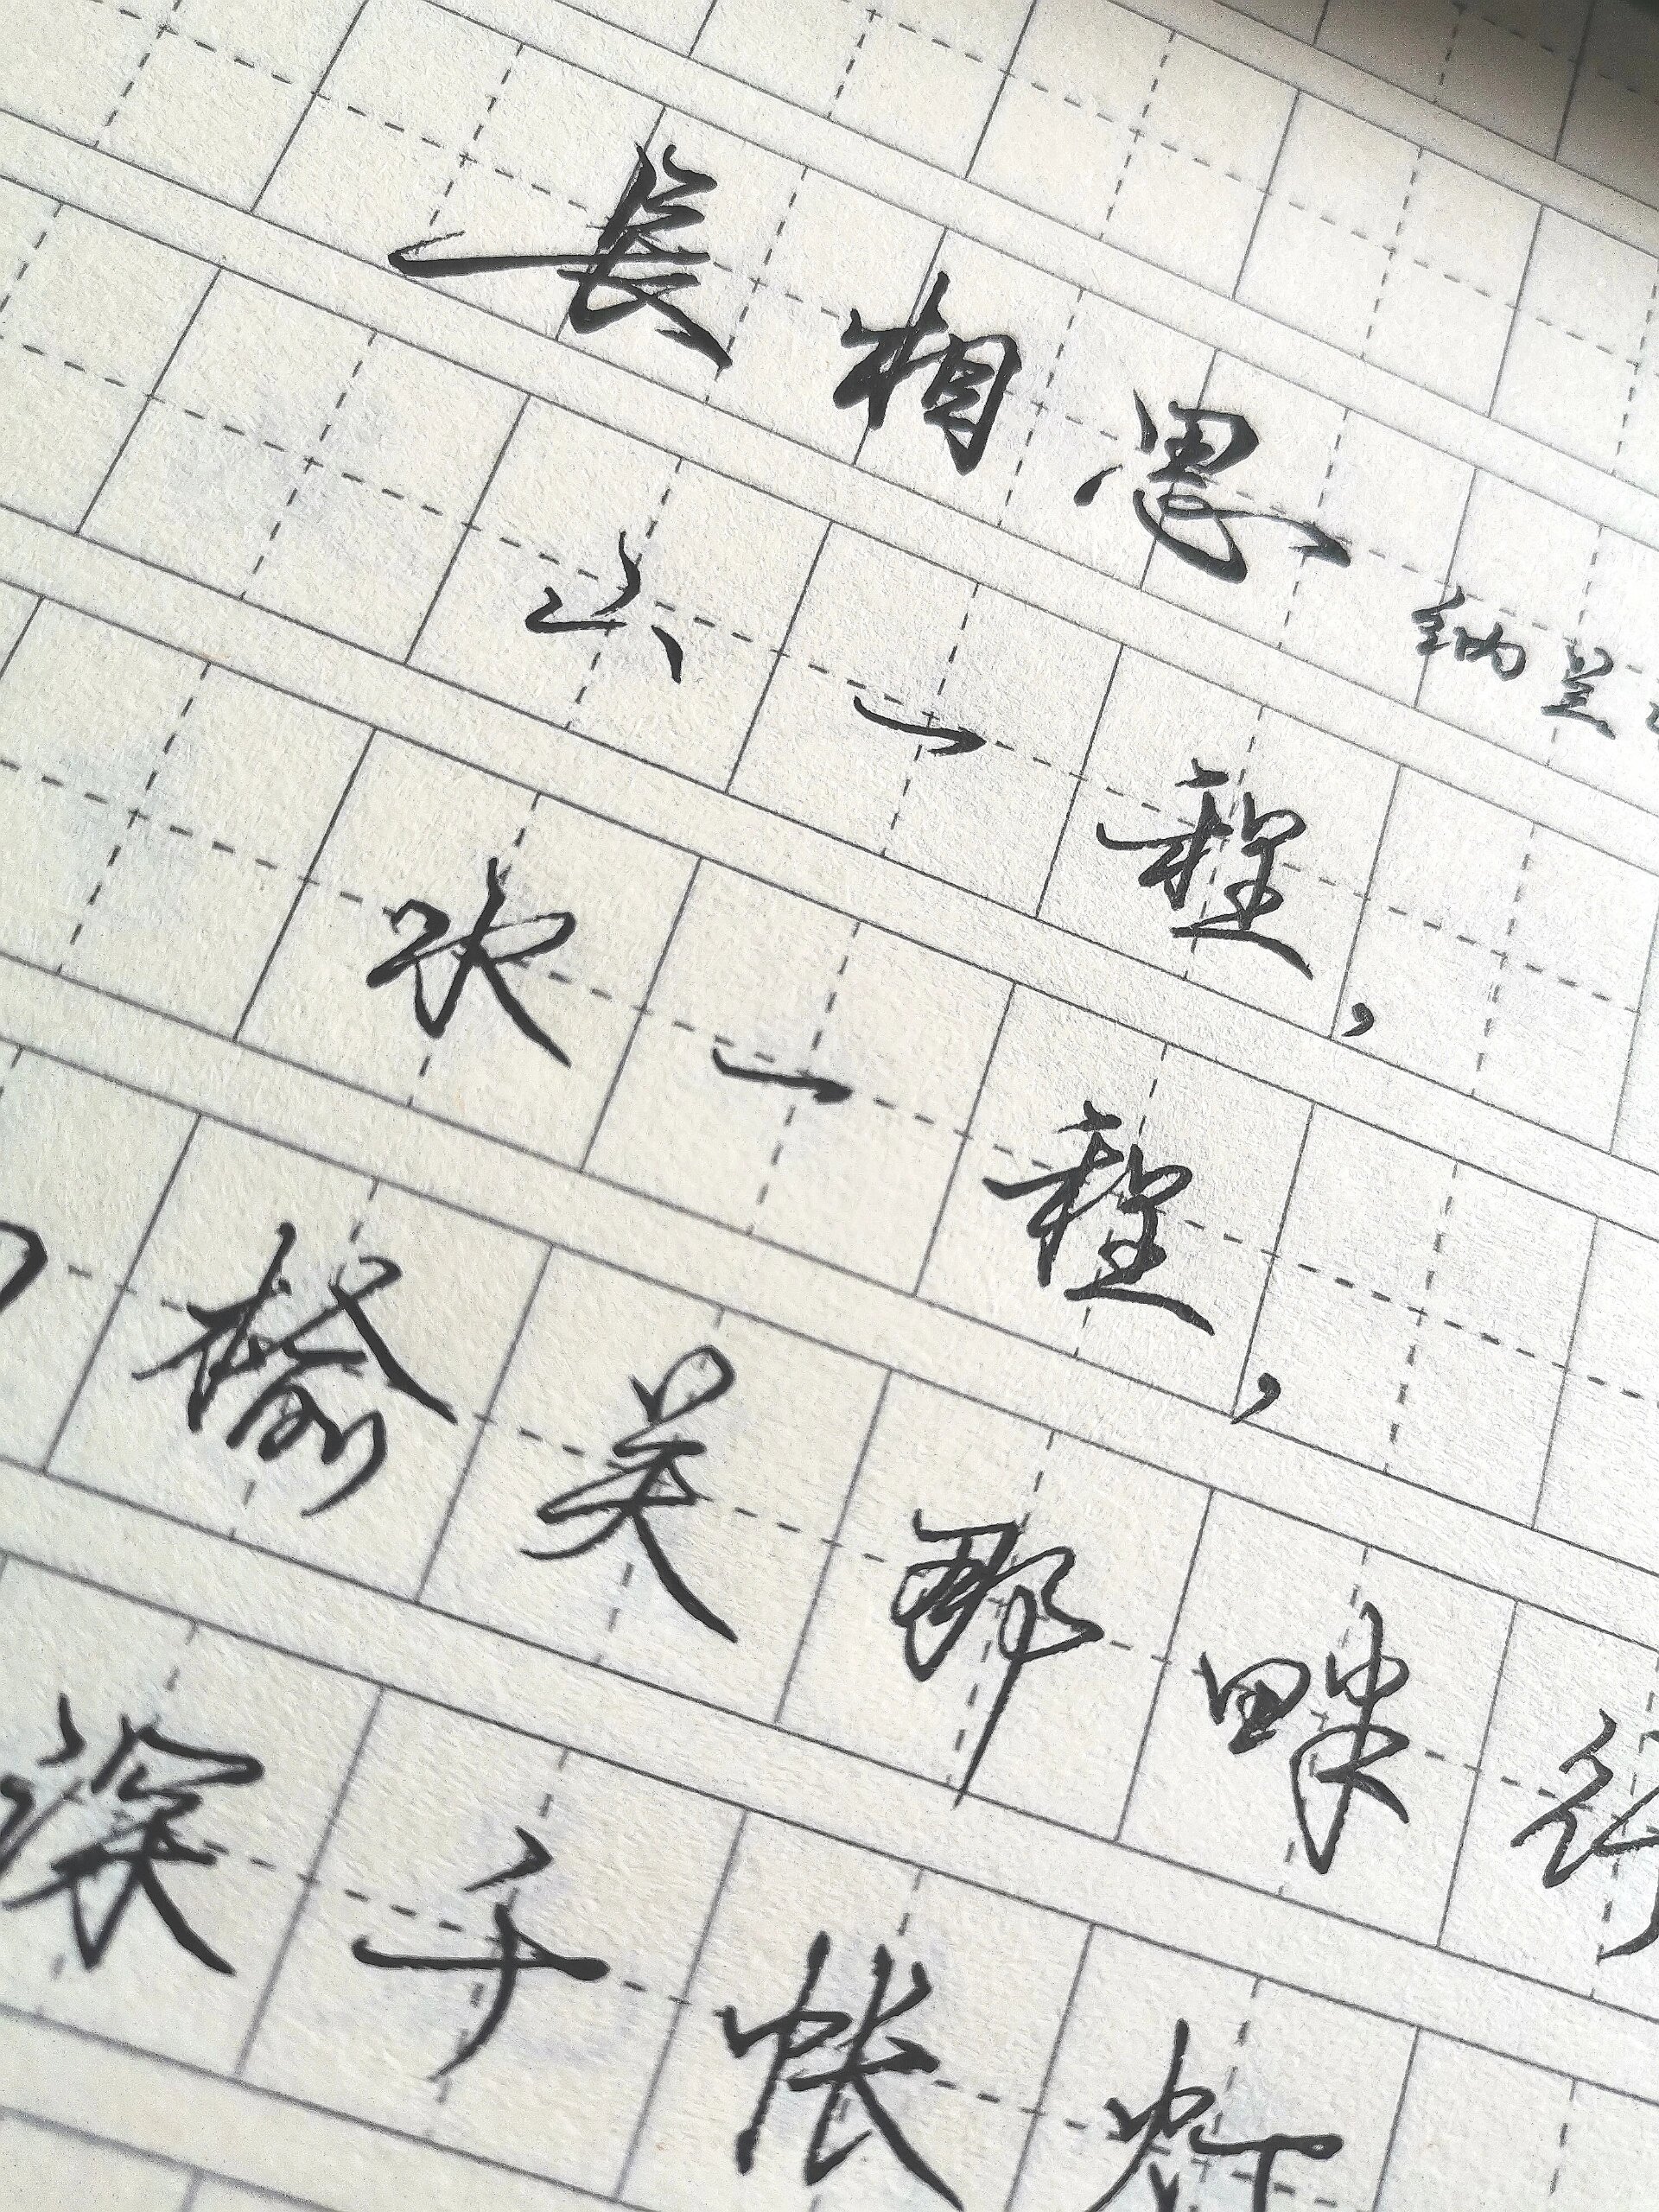 長相思 纳兰
山一程，
水一程，
榆关那畔行
深千帐灯